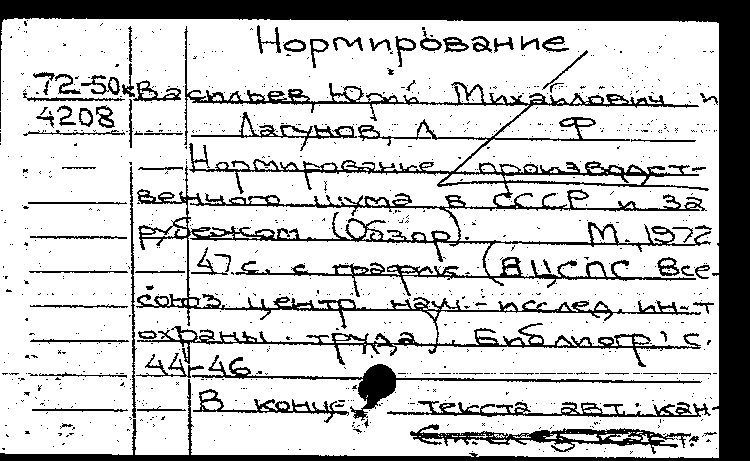 Нормирование
72-50к Васильев, Юрий Михайлович и
4208 Лагунов, Л Ф
Нормирование производст-
венного шума в СССР и за
рубежом. (Обзор). М., 1972.
47 с. с график. (ВЦСПС Все-
союз центр. науч.-исслед. ин-т
охраны труда). Библиогр.: с.
44-46.
В конце текста авт.: кан-